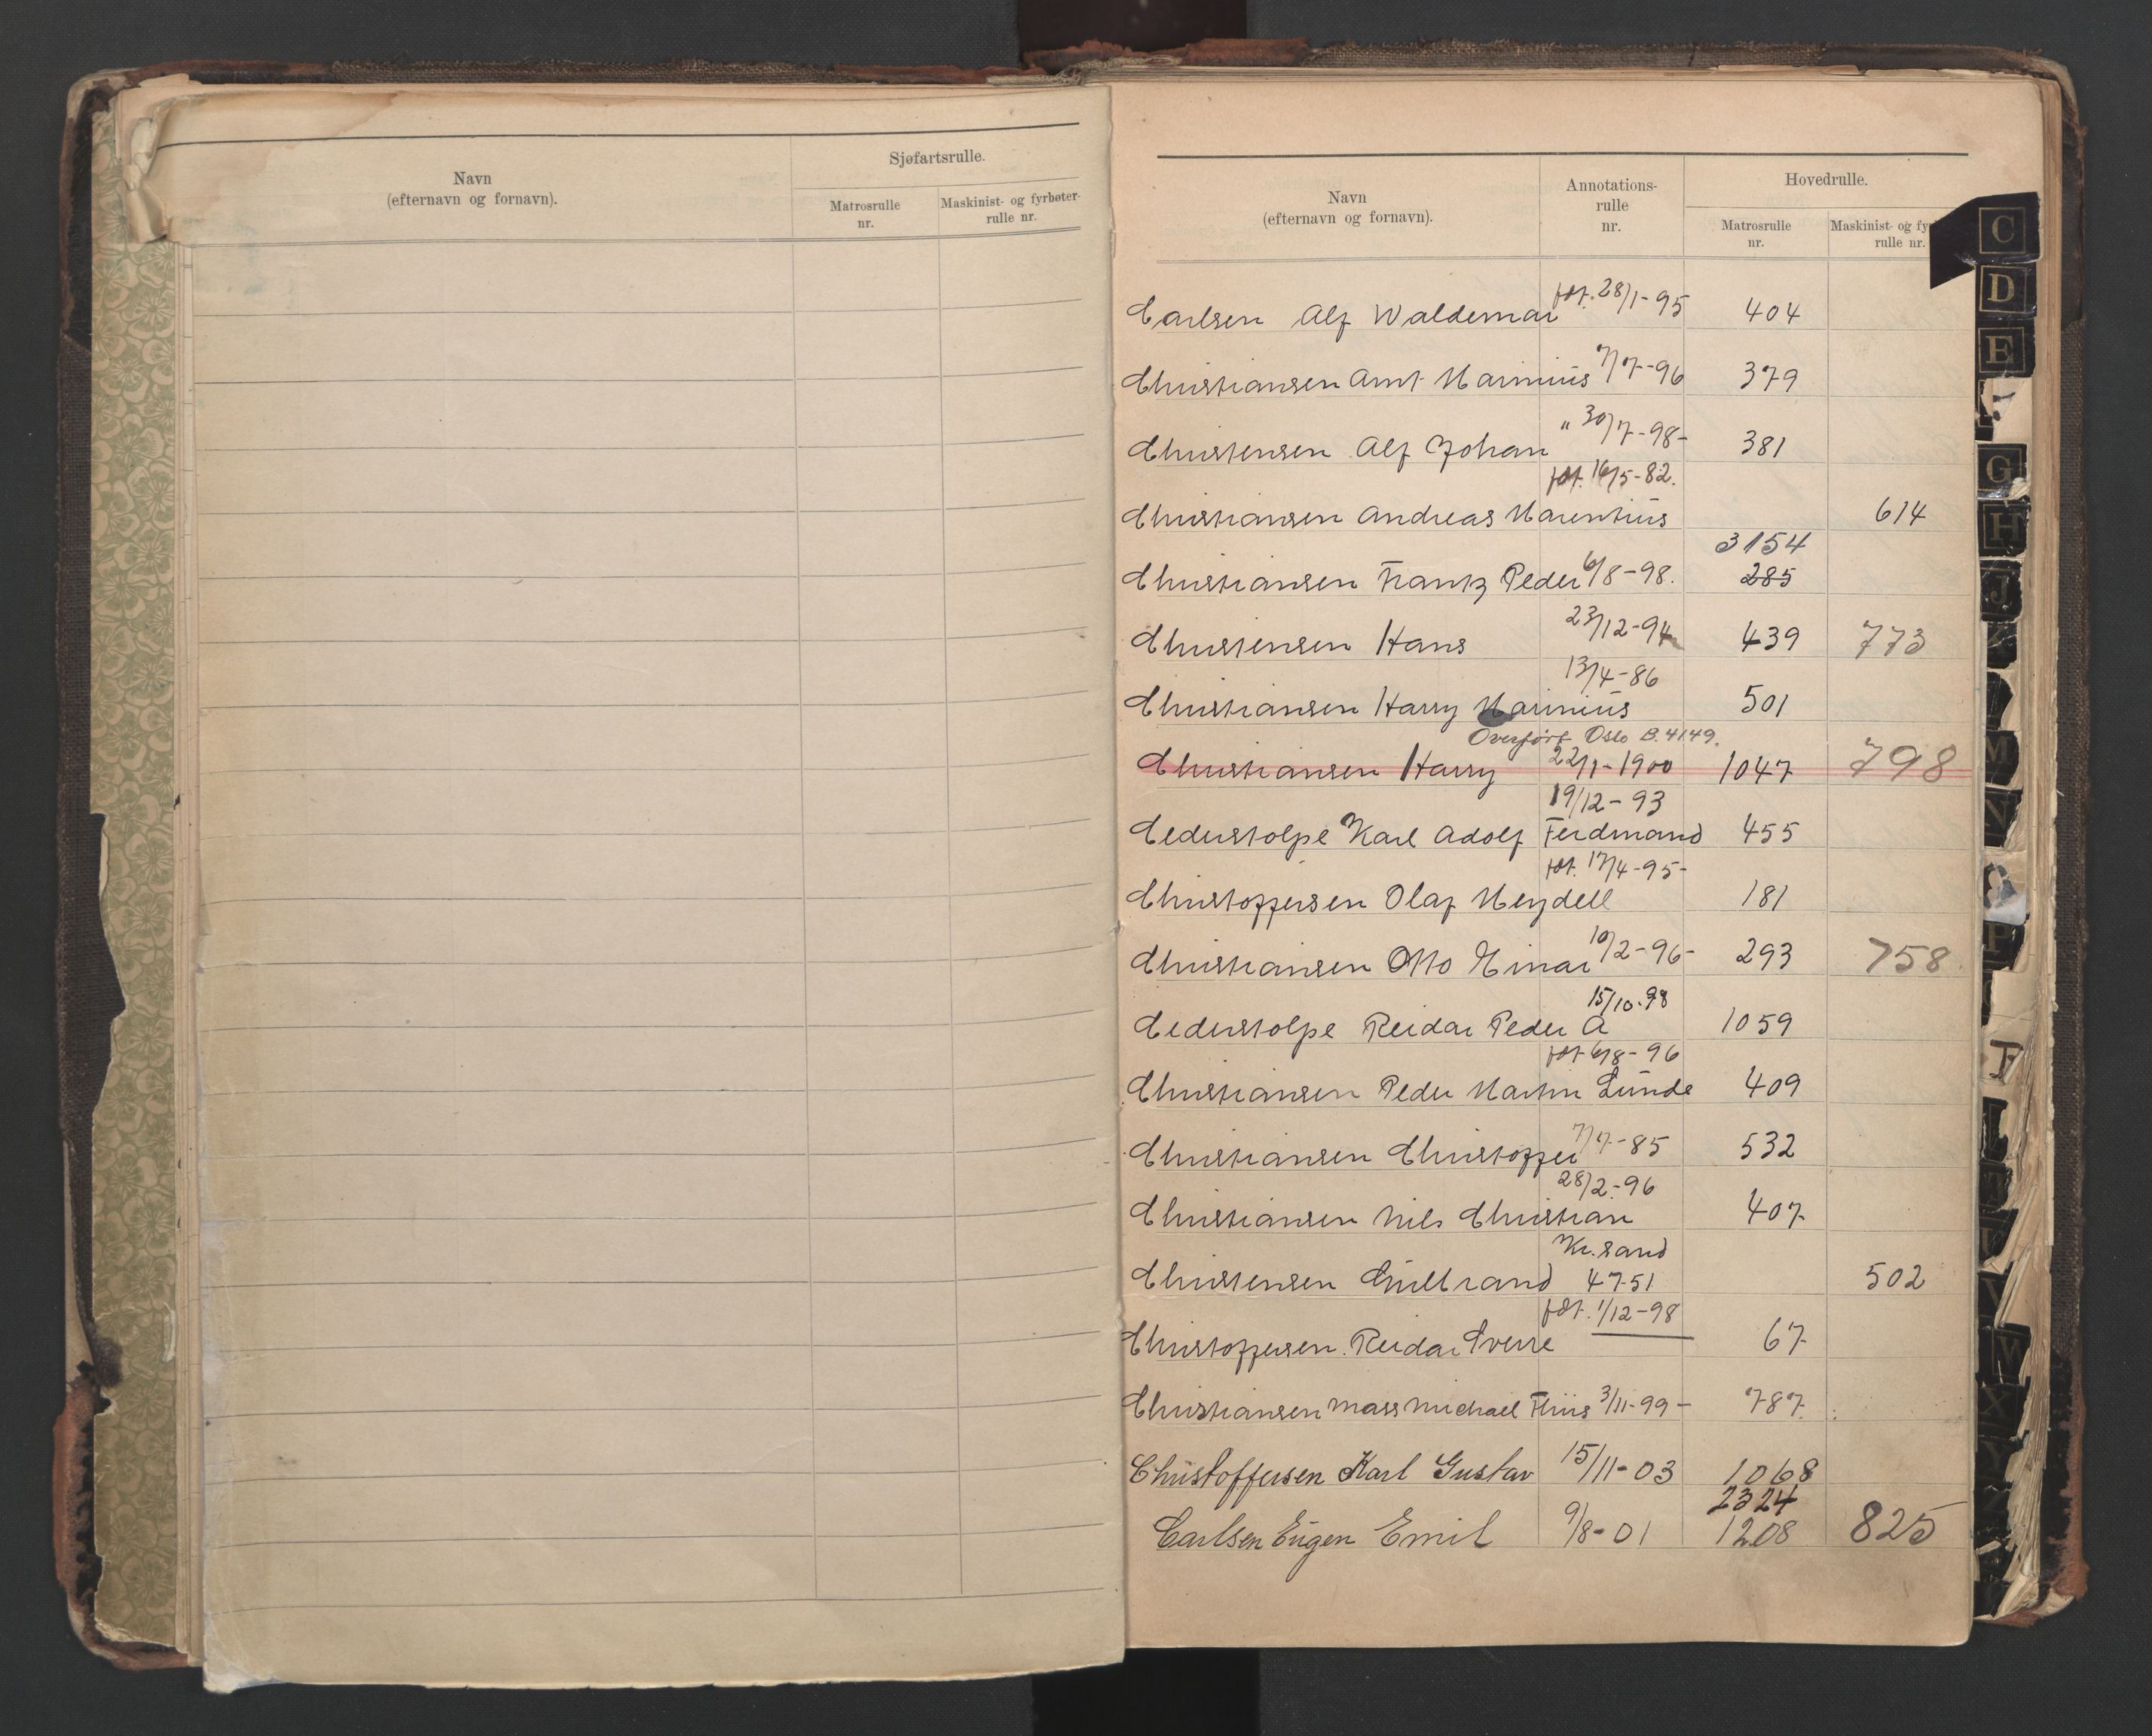 Navn
(efternavn og fornavn).
Sjøfartsrulle.
Matrosrulle
nr.
Maskinist- og fyrbøter-
rulle nr.
Navn
(efternavn og fornavn).
Annotations-
rulle
nr.
Hovedrulle.
Matrosrulle
nr.
Maskinist- og fy
rulle nr.
Carlsen Alf Waldemar født. 28/1-95 404
Christiansen Arnt Marinius 7/7-96 379
Christensen Alf Johan " 30/7-98- 381
født. 16/5-82.
Christiansen Andreas Marentius 614
3154
Christiansen Frantz Peder 6/8-98. 285
Christensen Hans 23/12-94 439 773
13/4-86
Christiansen Harry Marinius 501
Overført Oslo B.4149.
Christiansen Harry 22/1-1900 1047 798
19/12-93
Cederstolpe Karl Adolf Ferdinand 455
født. 17/4-95-
Christoffersen Olaf Meydell 181
Christiansen Otto Einar 10/2-96- 293 758
15/10-98
Cederstolpe Reidar Peder A 1059
født 6/8-96
Christiansen Peder Martin Lunde 409
Christiansen Christoffer 7/7-85 532
28/2-96
Christiansen Nils Christian 407
Kr.sand
Christensen Gulbrand 4751 502
født. 1/12-98
Christoffersen Reidar Sverre 67
Christiansen Mass Michael 3/11-99- 787.
Christoffersen Karl Gustav 15/11-03 1068
2324
Carlsen Eugen Emil 9/8-01 1208 825
C
D
E
G
H
J
M
N
P
T
V
W
X
Y
Z